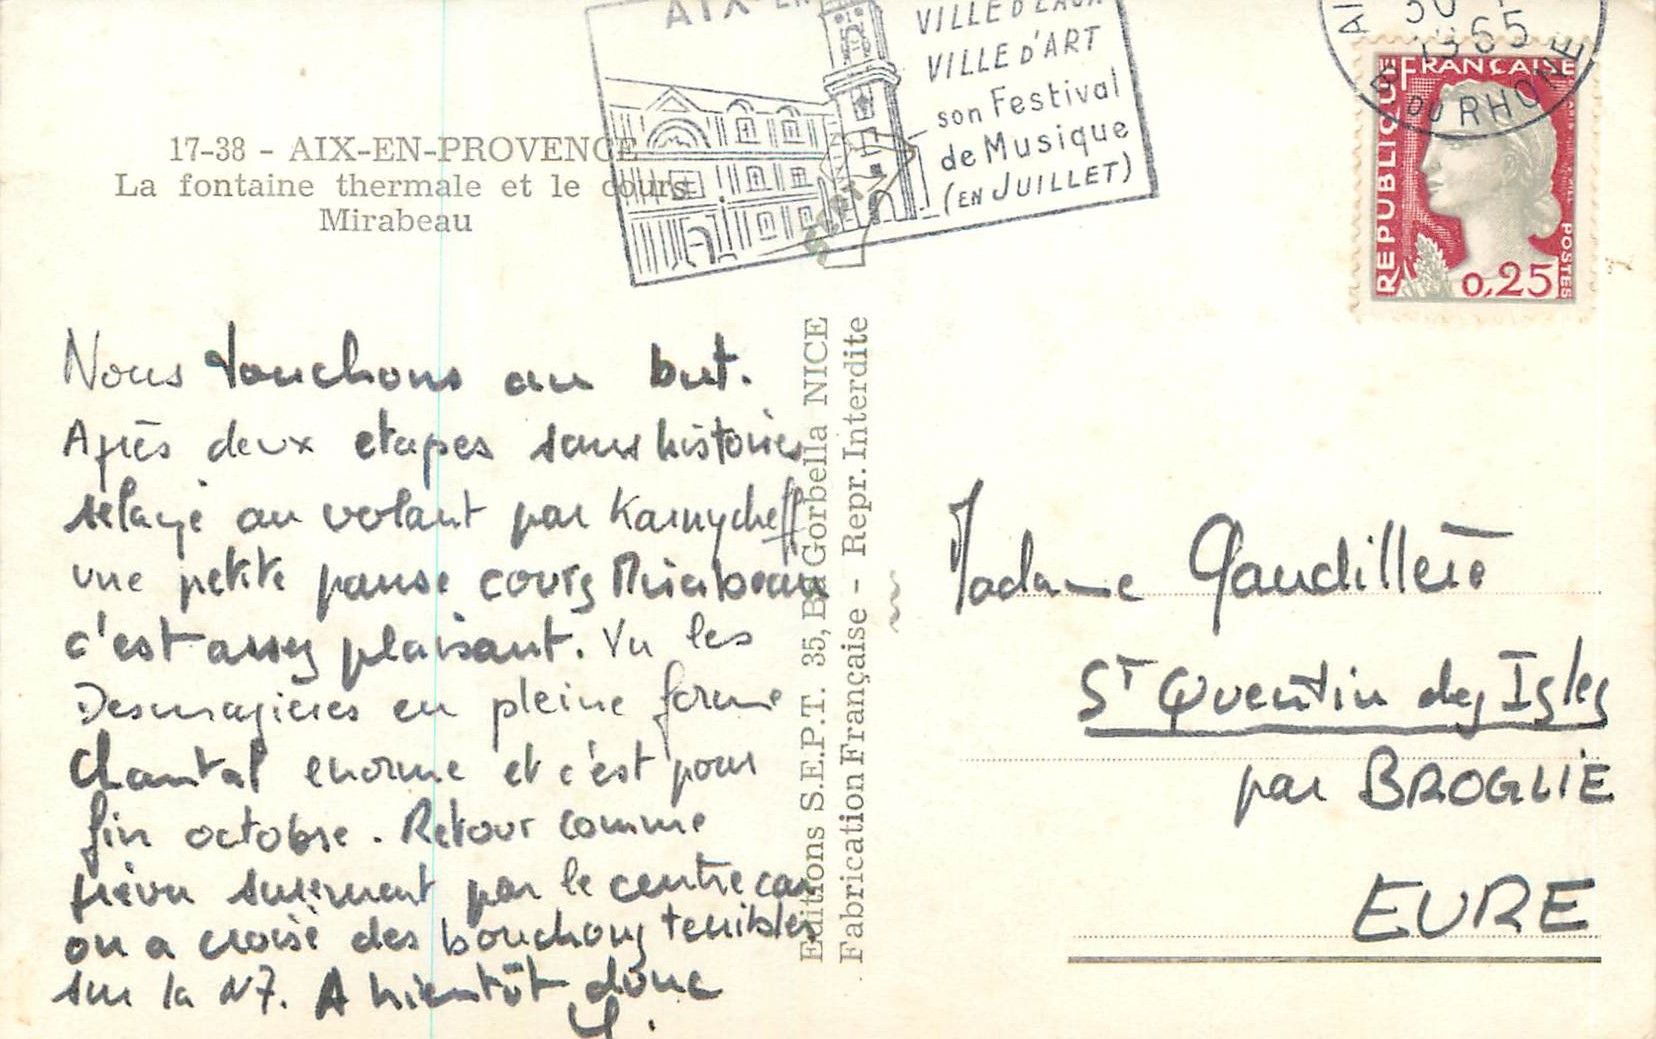 AIX-EN
VILLE D'EAUX
VILLE D'ART
son Festival
de Musique
(EN JUILLET)
1965
B DU RHONE
REPUBLIQUE
FRANÇAISE
POSTES
0,25
17-38 - AIX-EN-PROVENCE
La fontaine thermale et le cours
Mirabeau
Nous touchons au but.
Après deux etapes sans histoires
relayé au volant par Karnycheff
une petite pause cours Mirabeau
c'est assez plaisant. Vu les
Desmagières en pleine forme
Chantal enorme et c'est pour
fin octobre. Retour comme
prévu surement par le centre car
on a croisé des bouchons terribles
sur la N7. A bientôt donc
Editions S.E.P.T. 35, Bd Gorbella NICE
Fabrication Française - Repr. Interdite
Madame Gaudillère
St Quentin des Isles
par BROGLIE
EURE